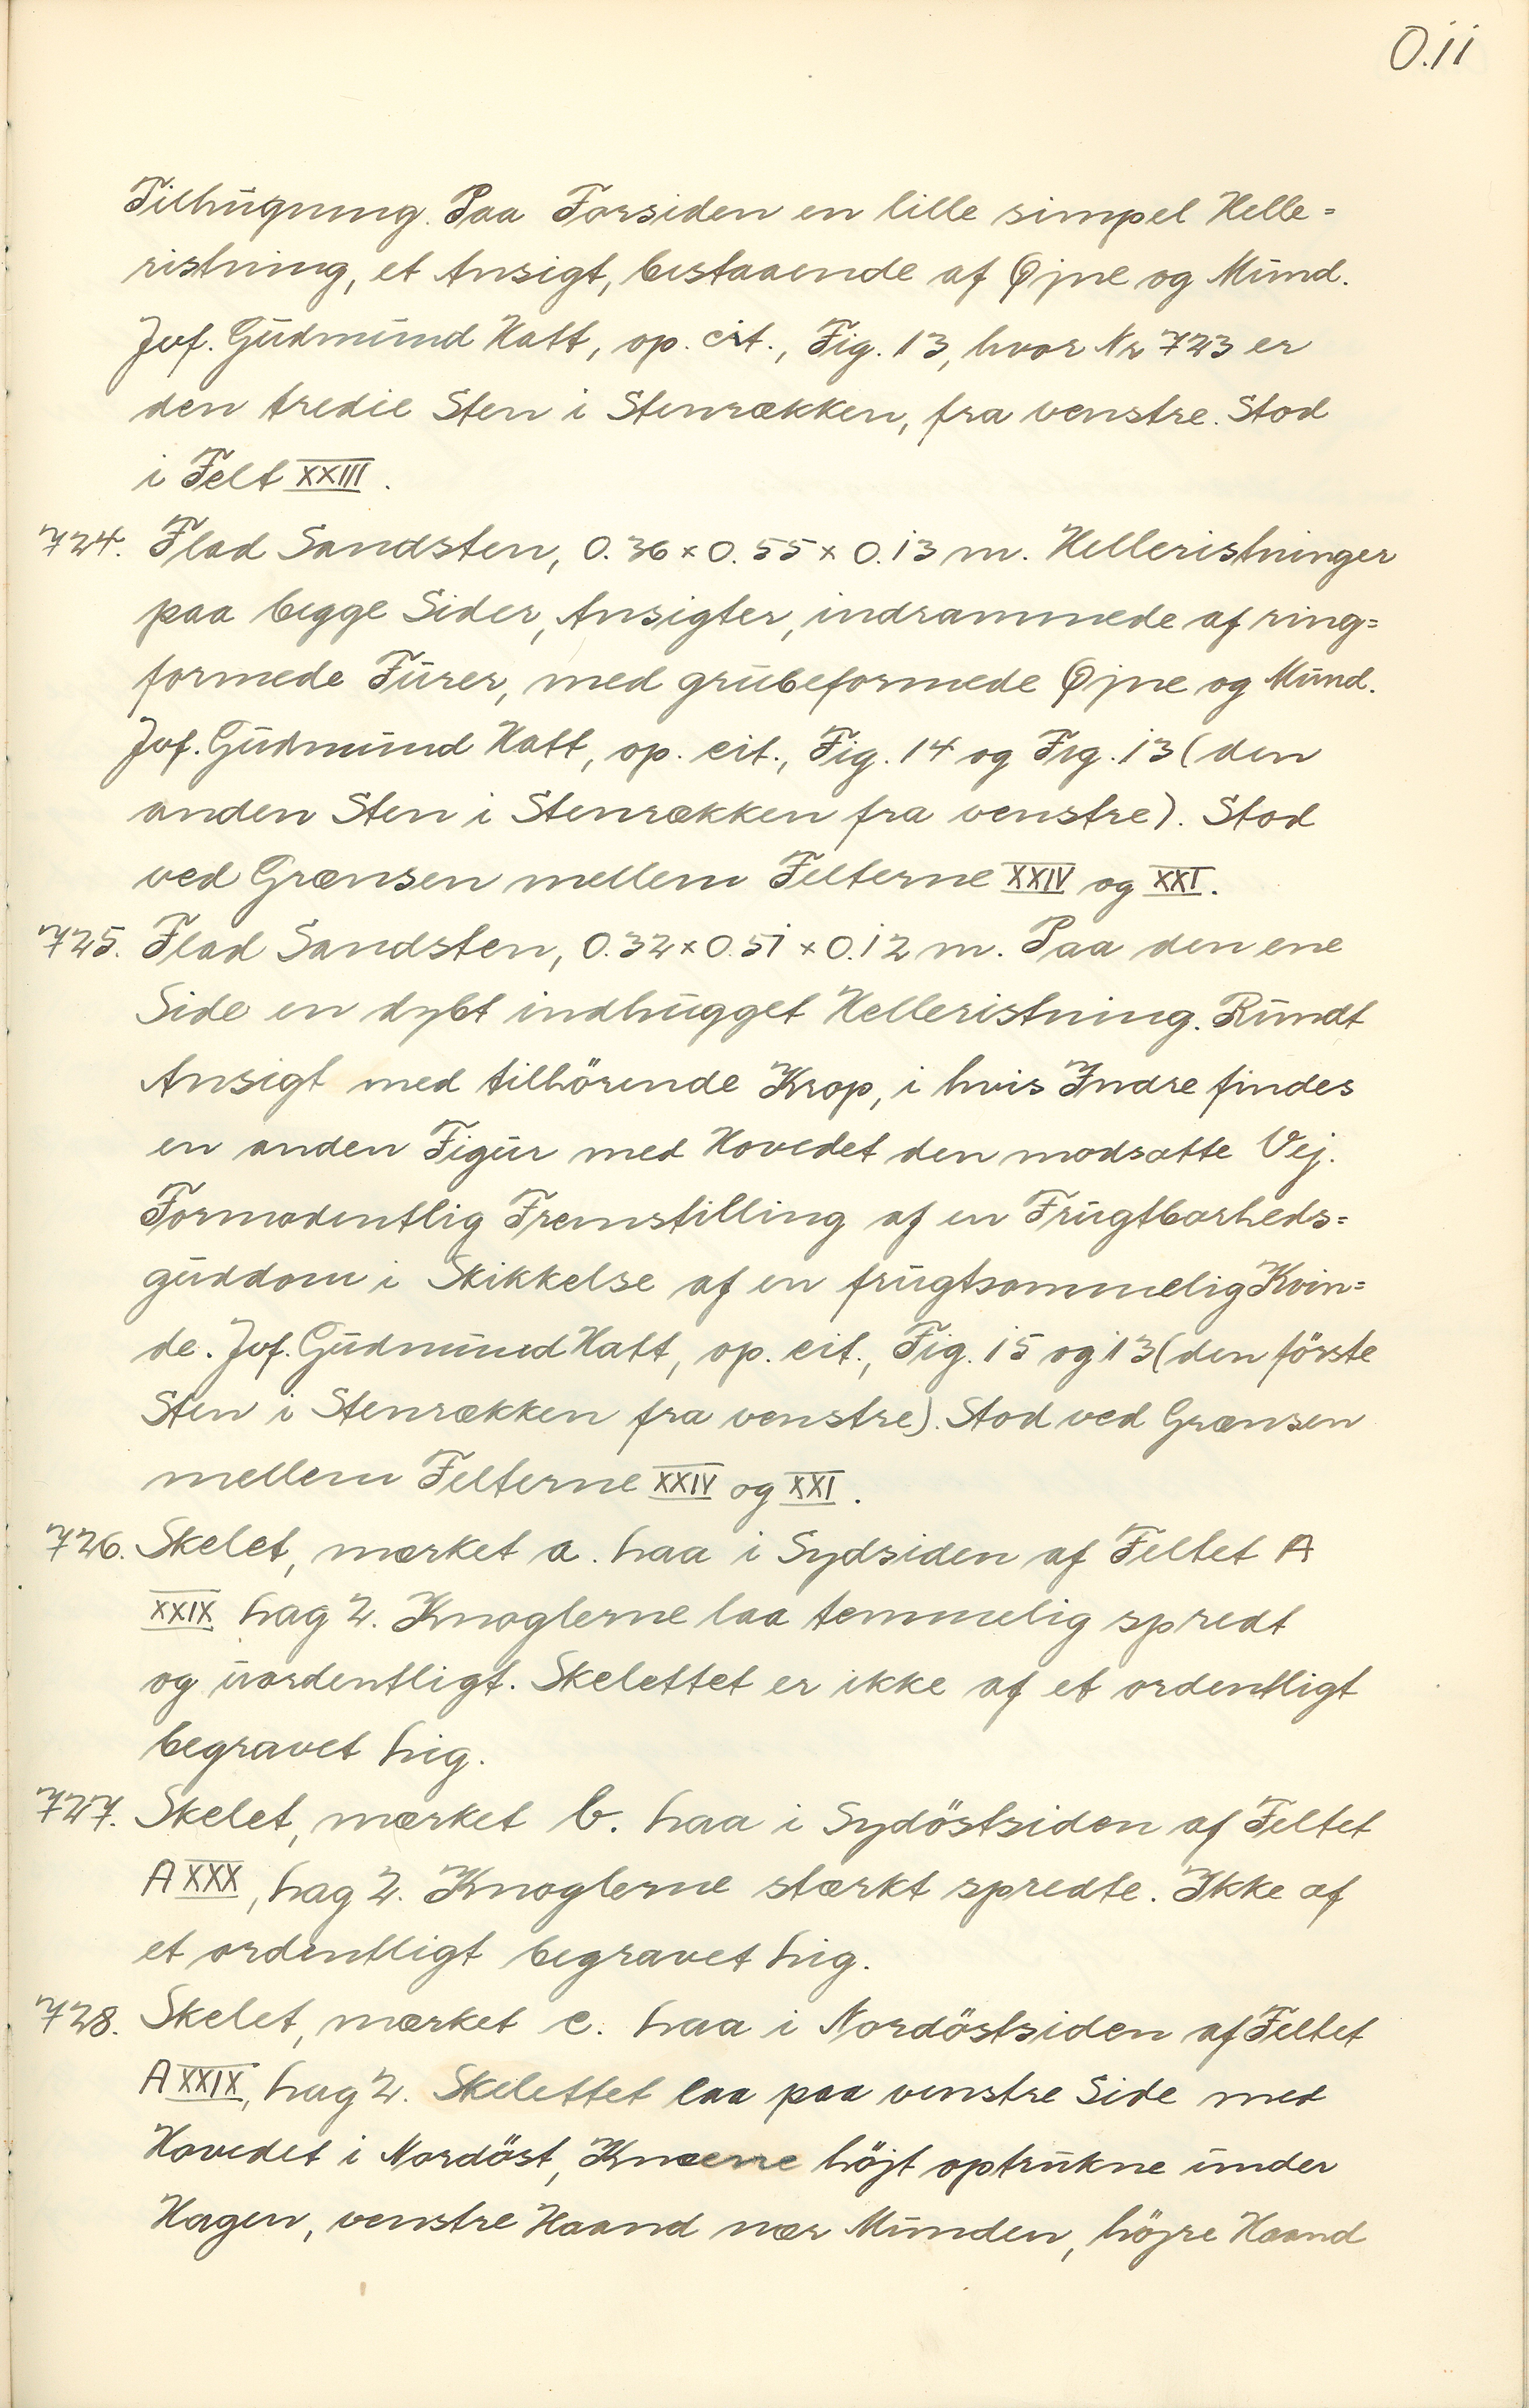 O.11
Tilhugning. Paa Forsiden en lille simpel Helle=
ristning, et Ansigt, bestaaende af Øjne og Mund.
Jvf. Gudmund Hatt, op. cit., Fig. 13, hvor Nr 723 er
den tredie Sten i Stenrækken, fra venstre. Stod
i Felt XXIII.
724. Flad Sandsten, 0.36 x 0.55 x 0.13 m. Helleristninger
paa begge Sider, Ansigter, indrammede af ring=
formede Furer, med grubeformede Øjne og Mund.
Jvf. Gudmund Hatt, op. cit., Fig. 14 og Fig. 13 (den
anden Sten i Stenrækken fra venstre). Stod
ved Grænsen mellem Felterne XXIV og XXI.
725. Flad Sandsten, 0.32 x 0.51 x 0.12 m. Paa den ene
Side en dybt indhugget Helleristning. Rundt
Ansigt med tilhörende Krop, i hvis Indre findes
en anden Figur med Hovedet den modsatte Vej.
Formodentlig Fremstilling af en Frugtbarheds=
guddom i Skikkelse af en frugtsommelig Kvin=
de. Jvf. Gudmund Hatt, op. cit., Fig. 15 og 13 (den förste
Sten i Stenrækken fra venstre). Stod ved Grænsen
mellem Felterne XXIV og XXI.
726. Skelet, mærket a. Laa i Sydsiden af Feltet A
XXIX Lag 2. Knoglerne laa temmelig spredt
og uordentligt. Skelettet er ikke af et ordentligt
begravet Lig.
727. Skelet, mærket b. Laa i Sydöstsiden af Feltet
A XXX, Lag 2. Knoglerne stærkt spredte. Ikke af
et ordentligt begravet Lig.
728. Skelet, mærket c. Laa i Nordöstsiden af Feltet
A XXIX, Lag 2. Skelettet laa paa venstre Side med
Hovedet i Nordöst, Knæerne höjt optrukne under
Hagen, venstre Haand nær Munden, höjre Haand